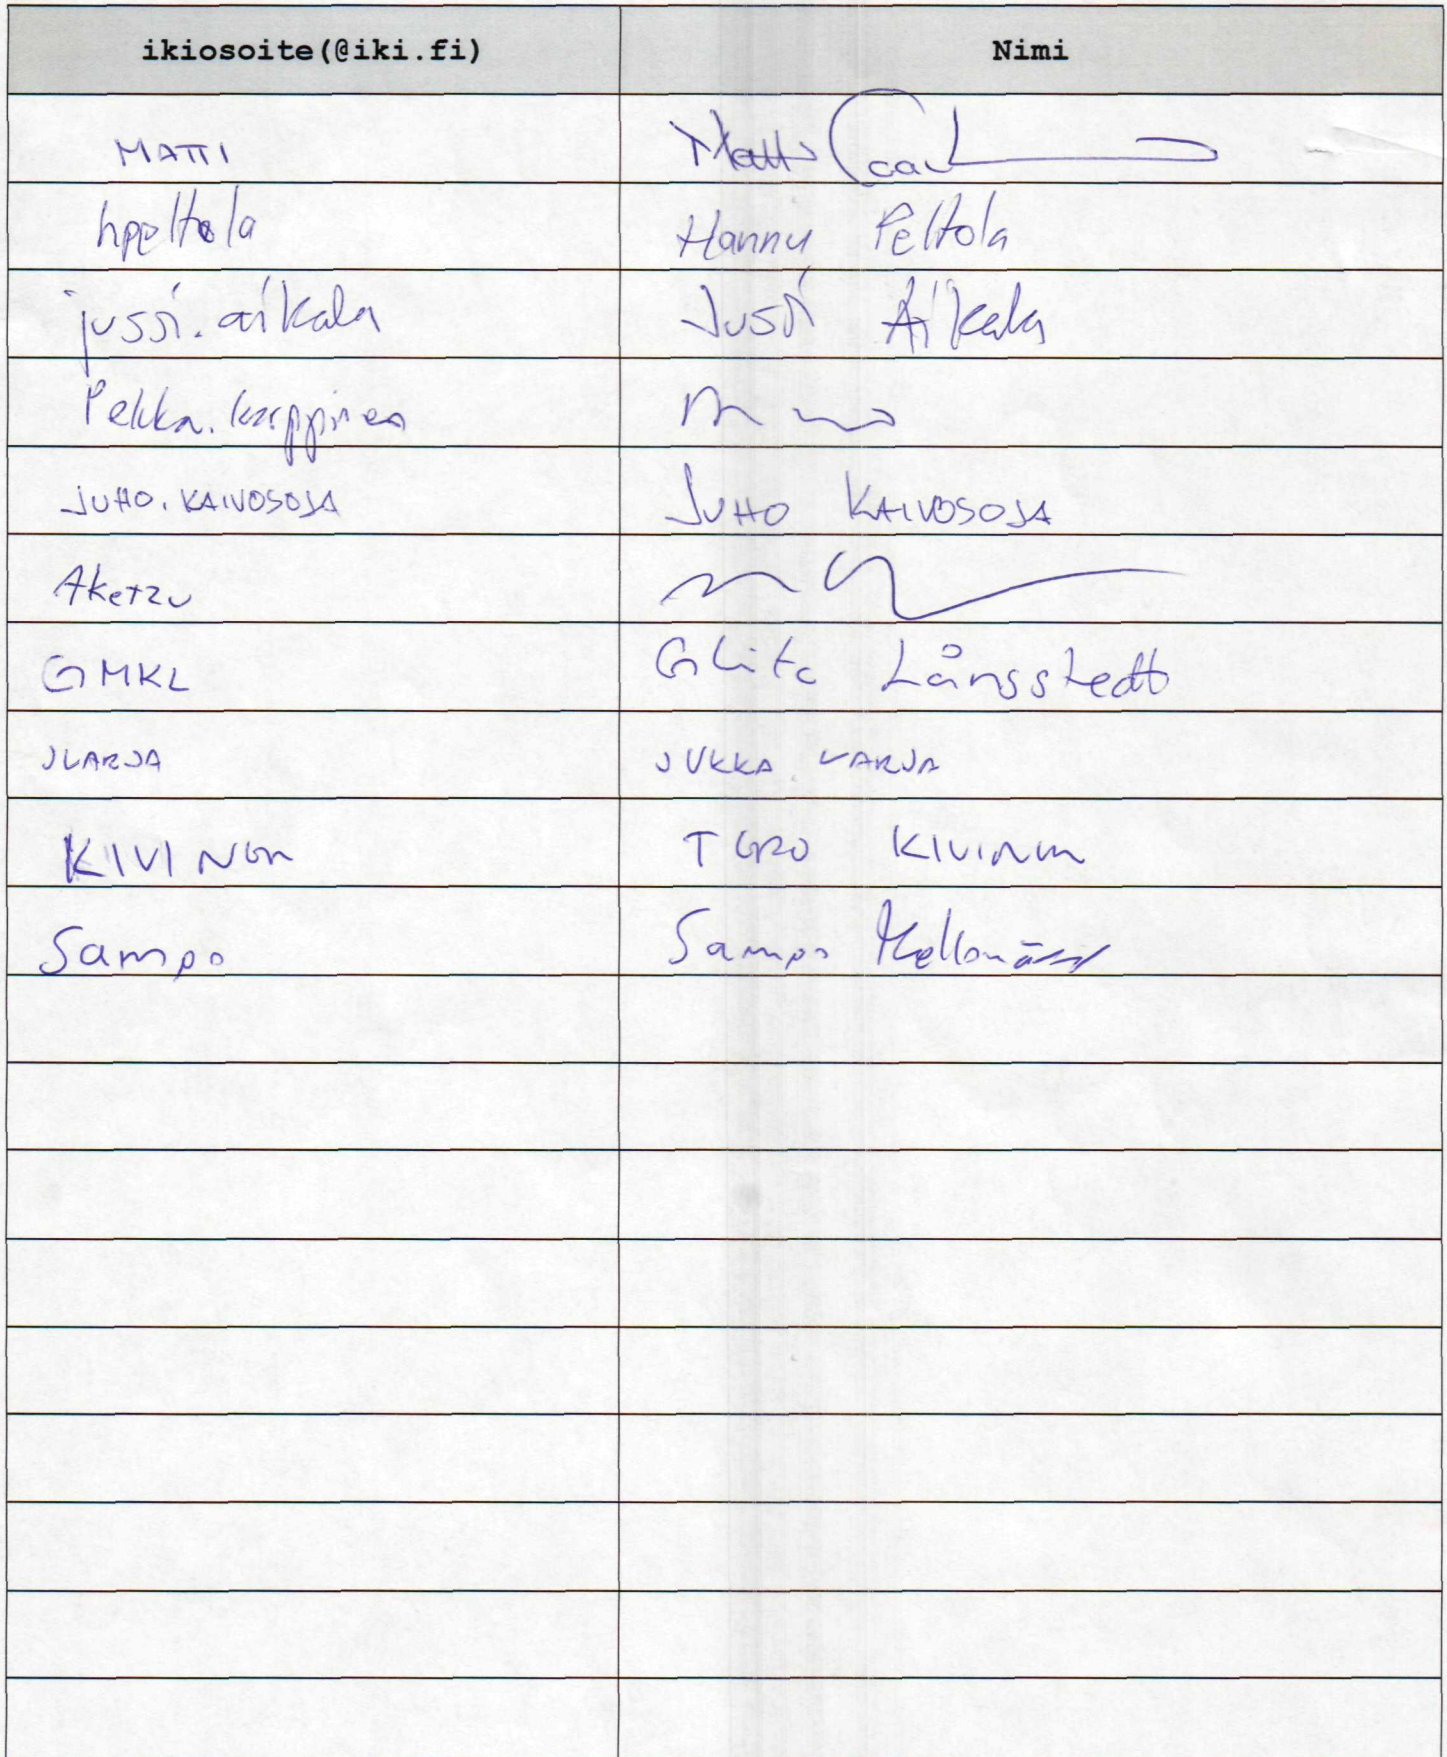 ikiosoite(@iki.fi) Nimi
MATTI Matti
hpeltola Hannu Peltola
jussi.aikala Jussi Aikala
Pekka.karppinen
JUHO.KAIVOSOJA JUHO KAIVOSOJA
Aketzu
GMKL Långstedt
JLARJA JUKKA LARJA
KIVINEN TERO KIVINEN
Sampo Sampo